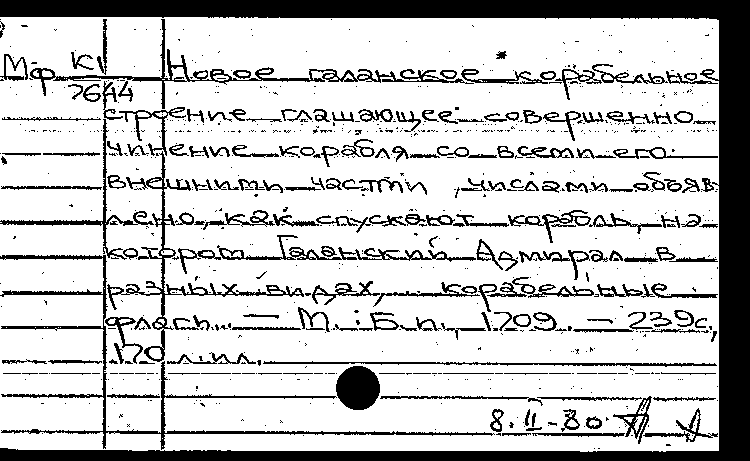 Мф К1 Новое галанское корабельное
7644
строение глашающее совершенно
чинение корабля со всеми его
внешними части, числами объяв
лено, как спускают корабль, на
котором Галанский Адмирал в
разных видах, корабельные
флаги... — М.: Б.п., 1709. — 239с,
170 л.ил.
8.II-80.